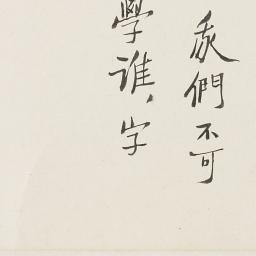 我們不可
學誰，字